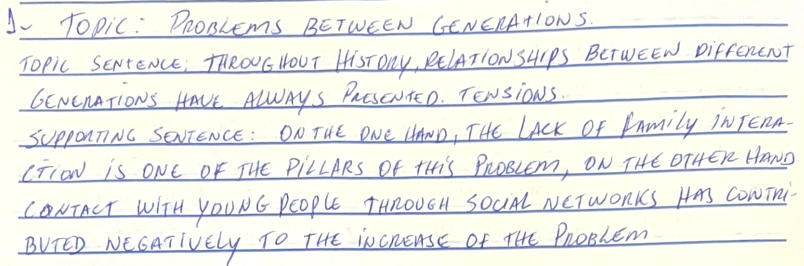 1- TOPIC: PROBLEMS BETWEEN GENERATIONS.
TOPIC SENTENCE: THROUGHOUT HISTORY, RELATIONSHIPS BETWEEN DIFFERENT
GENERATIONS HAVE ALWAYS PRESENTED. TENSIONS.
SUPPORTING SENTENCE: ON THE ONE HAND, THE LACK OF FAMILY INTERA-
CTION IS ONE OF THE PILLARS OF THIS PROBLEM, ON THE OTHER HAND
CONTACT WITH YOUNG PEOPLE THROUGH SOCIAL NETWORKS HAS CONTRI-
BUTED NEGATIVELY TO THE INCREASE OF THE PROBLEM